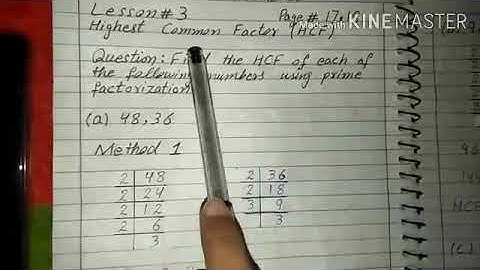 Lesson # 3
Page # 17,18
Made with KINEMASTER
Highest Common Factor (HCF)
Question: Find the HCF of each of
the following numbers using prime
factorization
(a) 48,36
Method 1
2 | 48
2 | 24
2 | 12
2 | 6
3
2 | 36
2 | 18
3 | 9
3
96
144
HCF
(c)